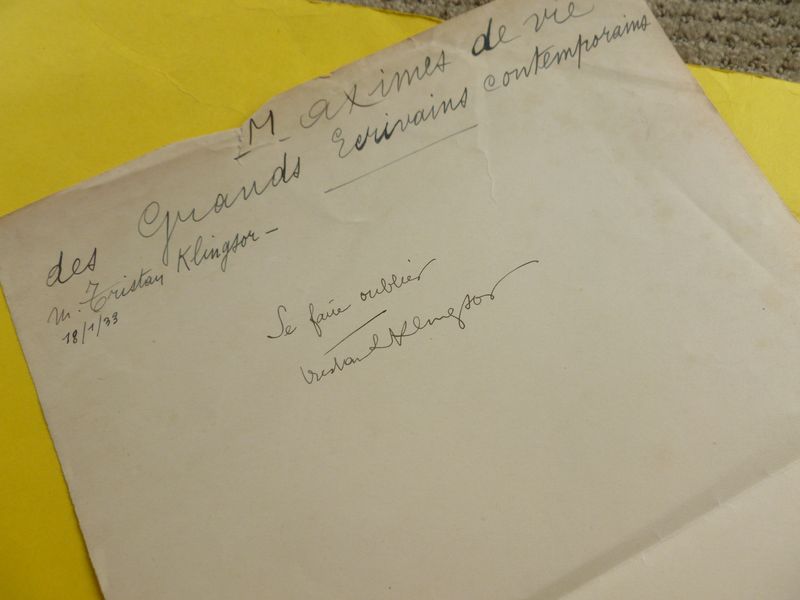 Maximes de vie
des Grands Ecrivains contemporains
M. Tristan Klingsor -
18/1/33
Se faire oublier
Tristan Klingsor